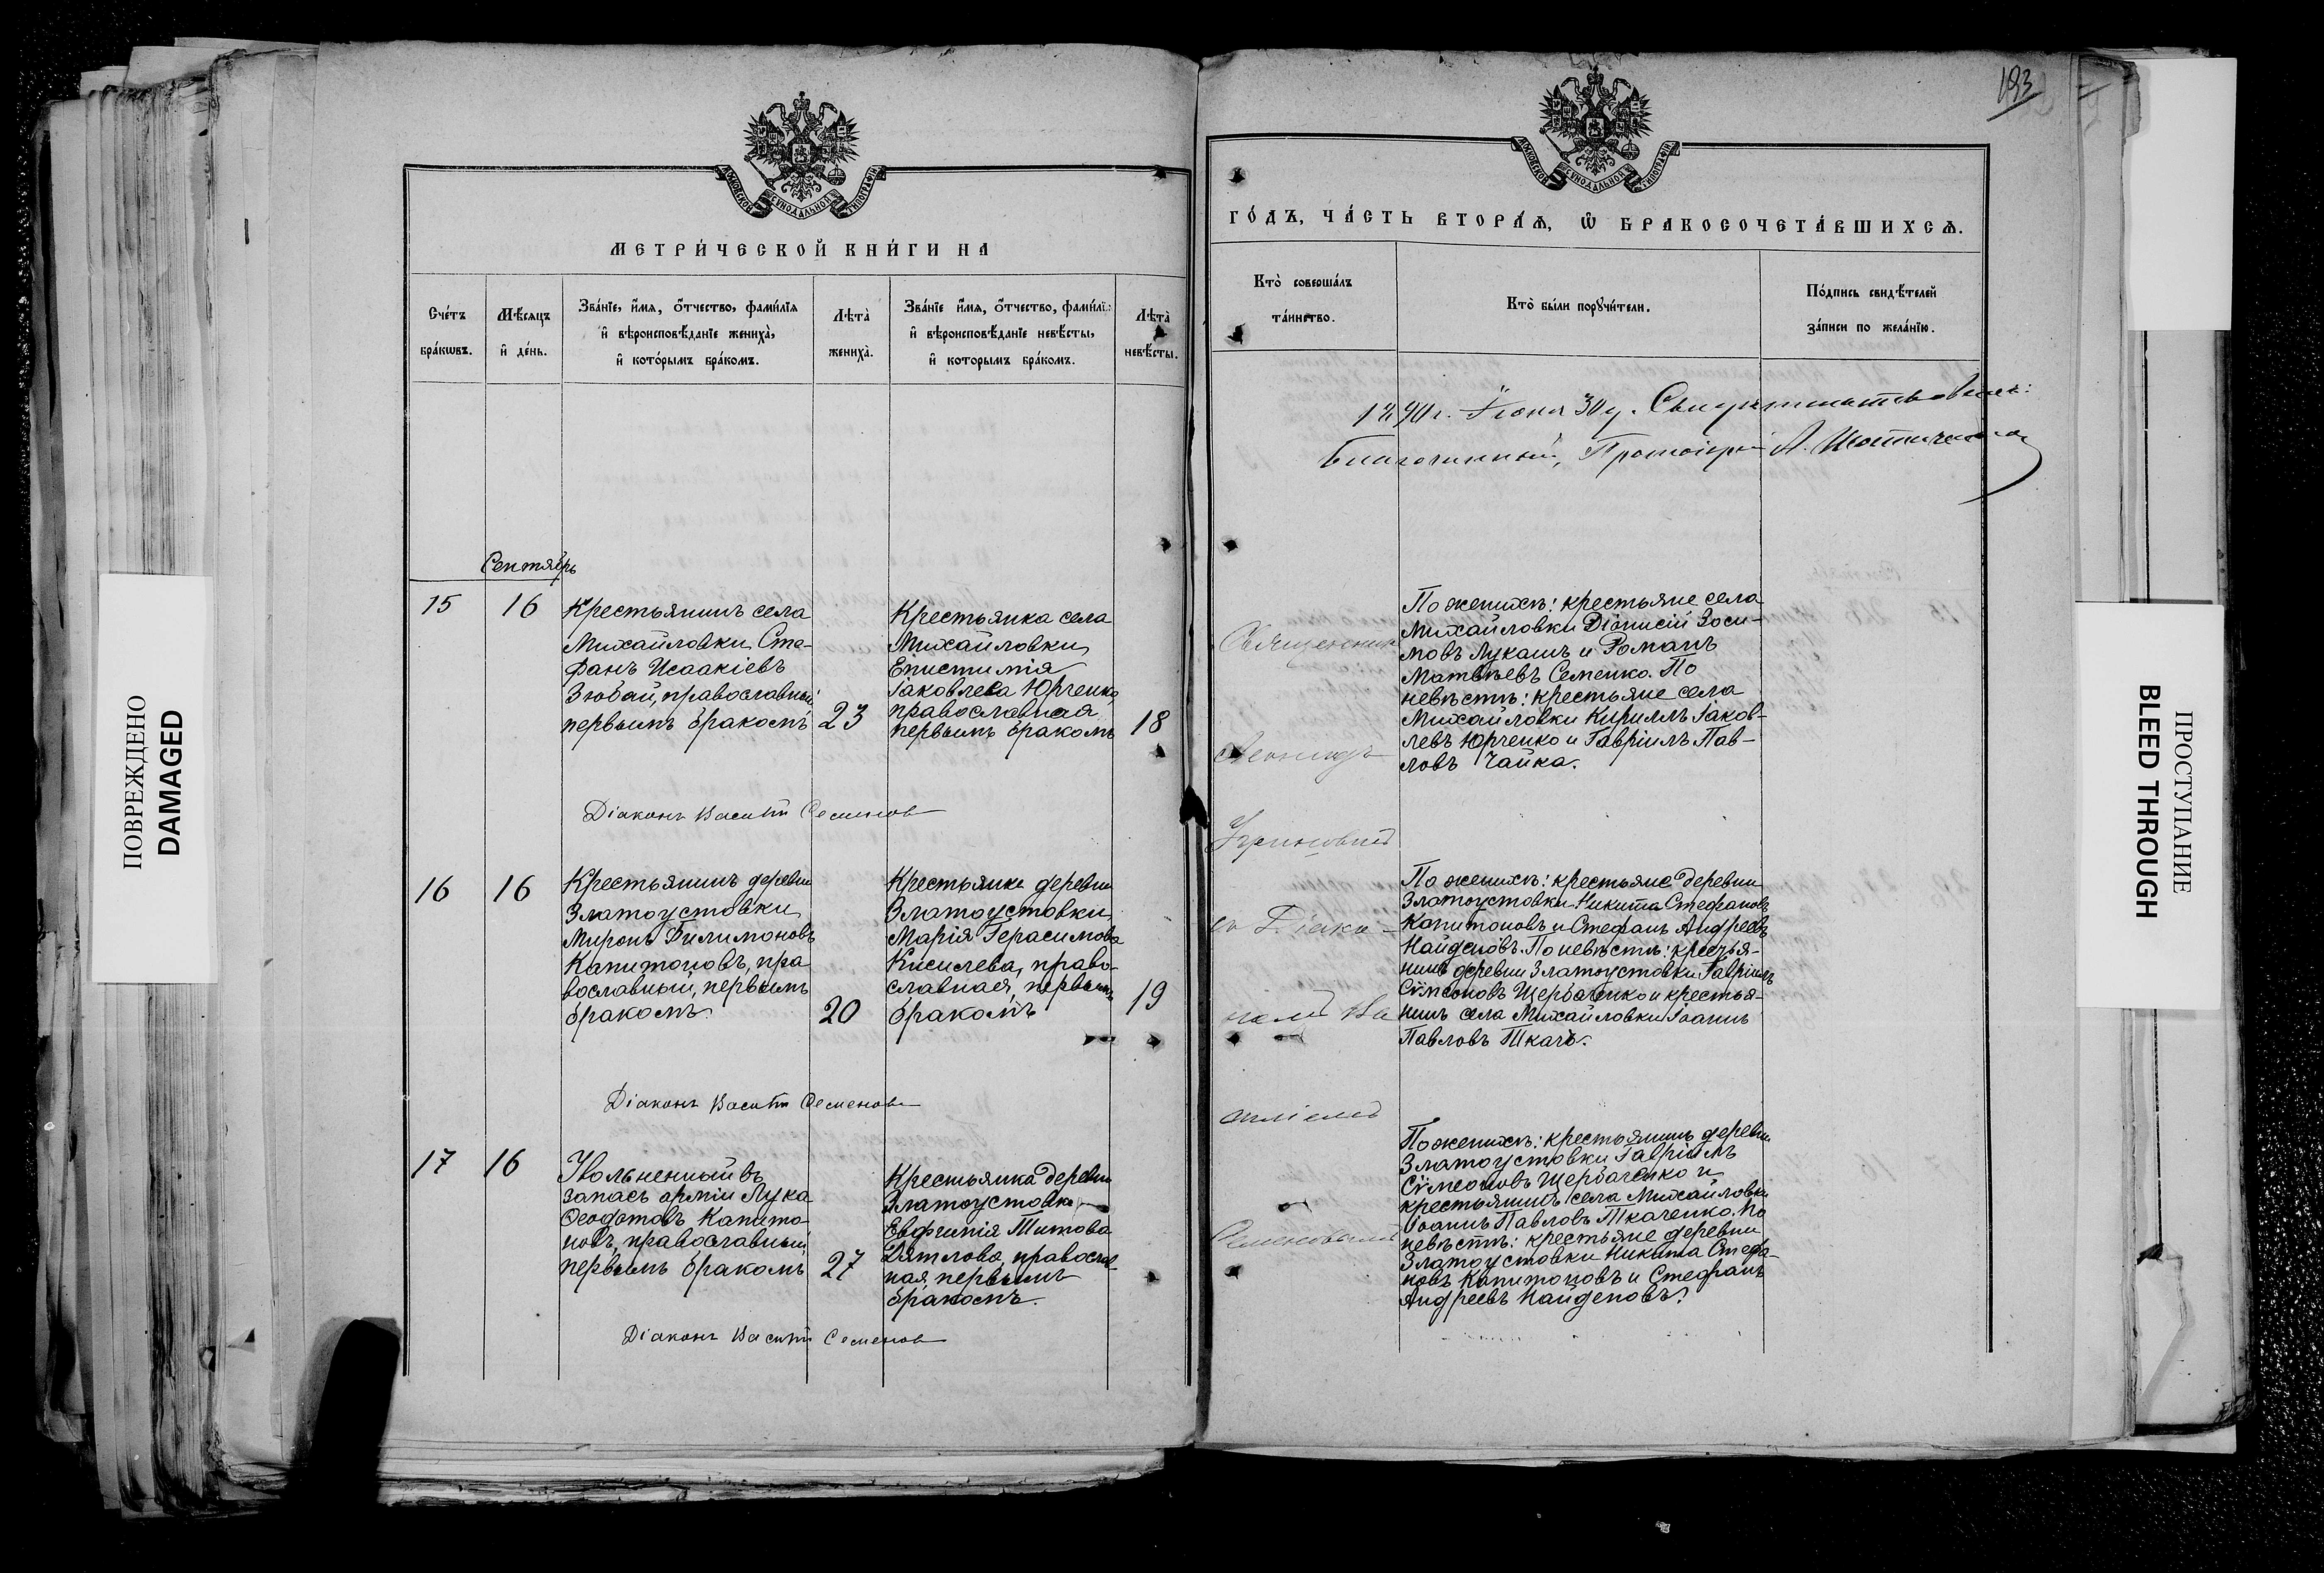 193
МОСКОВСКОЙ СѴНОДАЛЬНОЙ ТИПОГРАФІИ
МЕТРИ́ЧЕСКОЙ КНИ́ГИ НА
Сче́тъ бра́кѡвъ.
Мѣ́сяцъ и҆ де́нь.
Зва́нїе, и҆́мя, ѻ҆́тчество, фами́лїя
и҆ вѣроисповѣ́данїе жениха̀,
и҆ кото́рымъ бра́комъ.
Лѣта̀ жениха̀.
Зва́нїе и҆́мя, ѻ҆́тчество, фами́лї
и҆ вѣроисповѣ́данїе невѣ́сты,
и҆ которымъ бра́комъ.
Лѣта̀ невѣ́сты.
Сентябрь
15
16
Крестьянинъ села
Михайловки Сте-
фанъ Исаакіевъ
Зюбай, православный
первымъ бракомъ
23
Крестьянка села
Михайловки
Епистимія
Іаковлева Юрченко,
православная
первымъ бракомъ
18
Діаконъ Василій Семенов
16
16
Крестьянинъ деревни
Златоустовки
Миронъ Филимоновъ
Капитоновъ, пра
вославный, первымъ
бракомъ.
20
Крестьянка деревни
Златоустовки
Марія Герасимова
Киселева, право-
славная, первымъ
бракомъ
19
Діаконъ Василій Семенов
17
16
Увольненный въ
запасъ арміи Лука
Ѳеодотовъ Капито-
новъ, православный
первымъ бракомъ
27
Крестьянка деревни
Златоустовки
Евфимія Титова
Дятлова, православ-
ная, первымъ
бракомъ.
Діаконъ Василій Семенов
МОСКОВСКОЙ СѴНОДАЛЬНОЙ ТИПОГРАФІИ
ГО́ДЪ, ЧА́СТЬ ВТОРА́Ѧ, Ѽ БРАКОСОЧЕТА́ВШИХСѦ.
Кто̀ соверша́лъ
та́инство.
Кто̀ бы́ли порꙋчи́тели.
По́дпись свидѣ́телей
за́писи по жела́нїю.
1890 г. Іюня 30 д. Свидѣтельствовалъ:
Благочинный, Протоіерей А.
Священникъ
Леонидъ
съ Діако-
номъ Ва
силіемъ
Семеновымъ
По женихѣ: крестьяне села
Михайловки Діонисій Зоси-
мовъ Лукашъ и Романъ
Матвѣевъ Семенко. По
невѣстѣ: крестьяне села
Михайловки Кириллъ Іаков-
левъ Юрченко и Гавріилъ Пав-
ловъ Чайка.
По женихѣ: крестьяне деревни
Златоустовки Никита Стефановъ
Капитоновъ и Стефанъ Андреевъ
Найденовъ. По невѣстѣ: крестья-
нинъ деревни Златоустовки Гавріилъ
Сѵмеоновъ Щербаченко и крестья-
нинъ села Михайловки Іоаннъ
Павловъ Ткачъ.
По женихѣ: крестьянинъ деревни
Златоустовки Гавріилъ
Сѵмеоновъ Щербаченко и
крестьянинъ села Михайловки
Іоаннъ Павловъ Ткаченко. По
невѣстѣ: крестьяне деревни
Златоустовки Никита Стефа-
новъ Капитоновъ и Стефанъ
Андреевъ Найденовъ.
ПОВРЕЖДЕНО
DAMAGED
ПРОСТУПАНИЕ
BLEED THROUGH